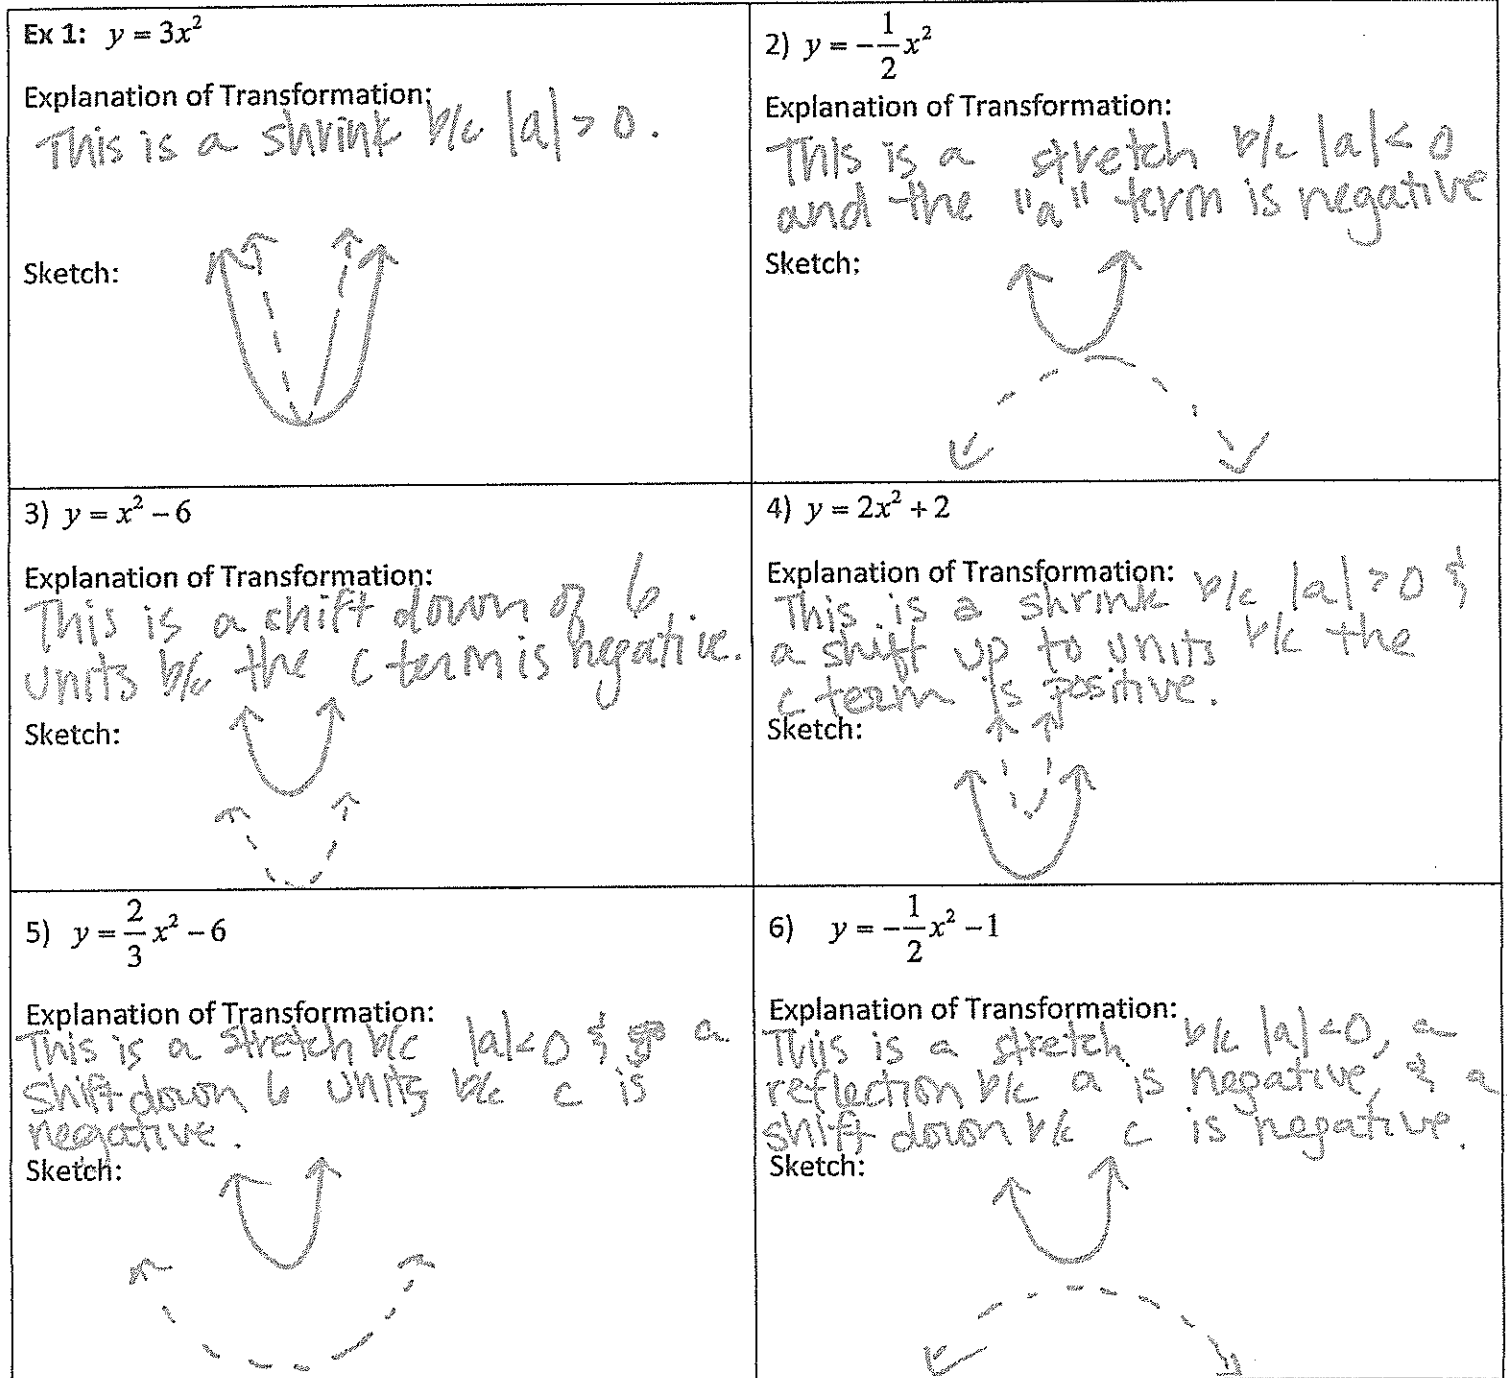 Ex 1: y = 3x²
Explanation of Transformation:
This is a shrink b/c |a| > 0.
Sketch:
2) y = -1/2 x²
Explanation of Transformation:
This is a stretch b/c |a| < 0
and the "a" term is negative
Sketch:
3) y = x² - 6
Explanation of Transformation:
This is a shift down of 6
units b/c the c term is negative.
Sketch:
4) y = 2x² + 2
Explanation of Transformation:
This is a shrink b/c |a| > 0 &
a shift up to units b/c the
c term is positive.
Sketch:
5) y = 2/3 x² - 6
Explanation of Transformation:
This is a stretch b/c |a| < 0 & a
shift down 6 units b/c c is
negative.
Sketch:
6) y = -1/2 x² - 1
Explanation of Transformation:
This is a stretch b/c |a| < 0, a
reflection b/c a is negative, & a
shift down b/c c is negative.
Sketch: